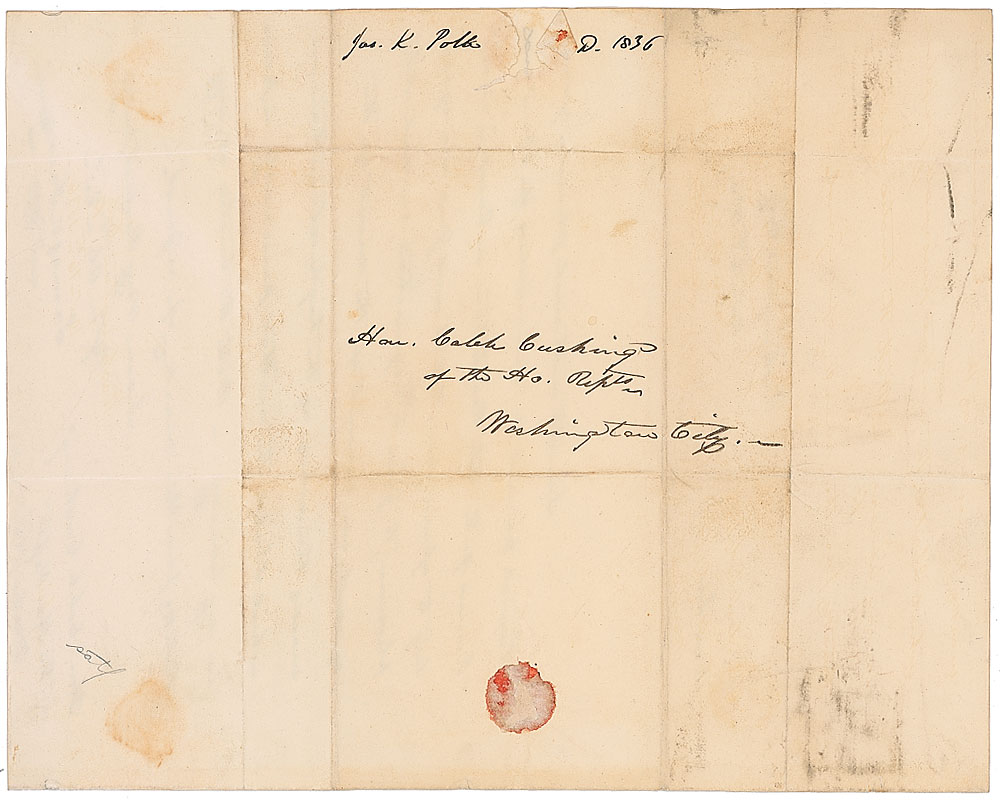 Jas. K. Polk D. 1836
Hon. Caleb Cushing
of the Ho. Repts
Washington City. —